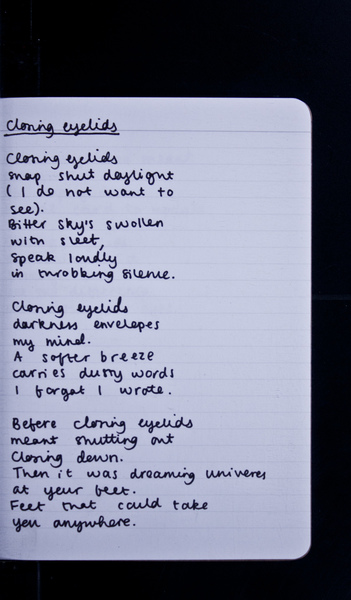 Closing eyelids
Closing eyelids
snap shut daylight
(I do not want to
see).
Bitter sky's swollen
with sleet,
speak loudly
in throbbing silence.
Closing eyelids
darkness envelopes
my mind.
A softer breeze
carries dusty words
I forgot I wrote.
Before closing eyelids
meant shutting out
Closing down.
Then it was dreaming univeres
at your feet.
Feet that could take
you anywhere.